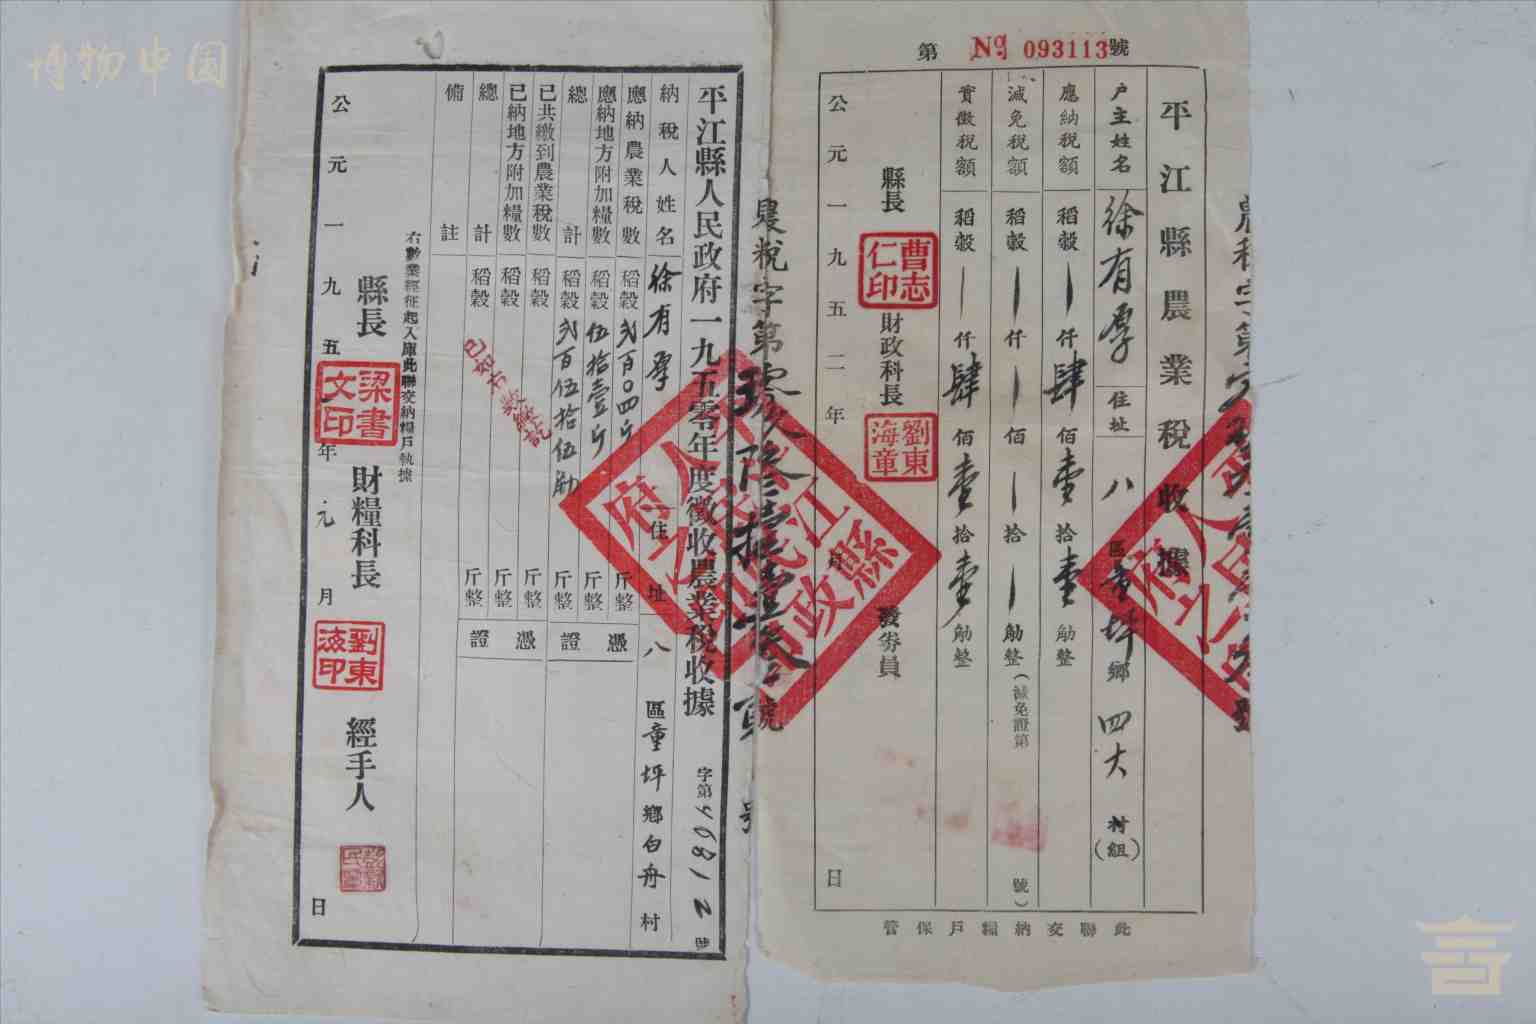 博物中国
第 No 093113 號
平江縣農業稅收據
户主姓名 徐有孚 住址 八區童坪鄉四大村(組)
應納稅額 稻穀 仟肆佰壹拾壹觔整
減免稅額 稻穀 仟 佰 拾 觔整(減免證第 號)
實徵稅額 稻穀 仟肆佰壹拾壹觔整
縣長 曹志仁印 財政科長 劉東海章 發劵員
公元一九五二年 月 日
此聯交納糧戶保管
農稅字第 號
平江縣人民政府
平江縣人民政府一九五零年度徵收農業稅收據 字第46812號
納稅人姓名 徐有孚 住址 八區童坪鄉白舟村
應納農業稅數 稻穀 弍百0四斤 斤整
應納地方附加糧數 稻穀 伍拾壹斤 斤整
總計 稻穀 弍百伍拾伍觔 斤整
憑證
已共繳到農業稅數 稻穀 斤整
已納地方附加糧數 稻穀 斤整
總計 稻穀 斤整
憑證
備註
右數業經征起入庫此聯交納糧戶執據
縣長 梁書文印 財糧科長 劉東海印 經手人
公元一九五 年元月 日